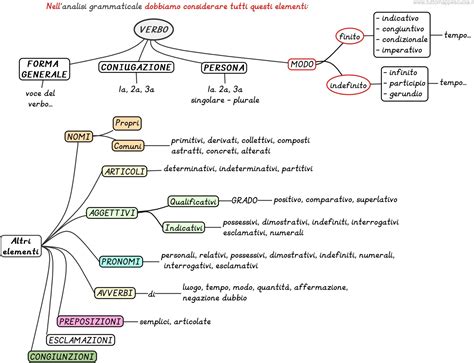 Nell'analisi grammaticale dobbiamo considerare tutti questi elementi
VERBO
FORMA
GENERALE
voce del
verbo...
CONIUGAZIONE
1a, 2a, 3a
PERSONA
1a, 2a, 3a
singolare - plurale
MODO
finito
- indicativo
- congiuntivo
- condizionale
- imperativo
tempo...
indefinito
- infinito
- participio
- gerundio
tempo...
Altri
elementi
NOMI
Propri
Comuni
primitivi, derivati, collettivi, composti
astratti, concreti, alterati
ARTICOLI
determinativi, indeterminativi, partitivi
AGGETTIVI
Qualificativi
GRADO
positivo, comparativo, superlativo
Indicativi
possessivi, dimostrativi, indefiniti, interrogativi
esclamativi, numerali
PRONOMI
personali, relativi, possessivi, dimostrativi, indefiniti, numerali,
interrogativi, esclamativi
AVVERBI
di
luogo, tempo, modo, quantità, affermazione,
negazione dubbio
PREPOSIZIONI
semplici, articolate
ESCLAMAZIONI
CONGIUNZIONI